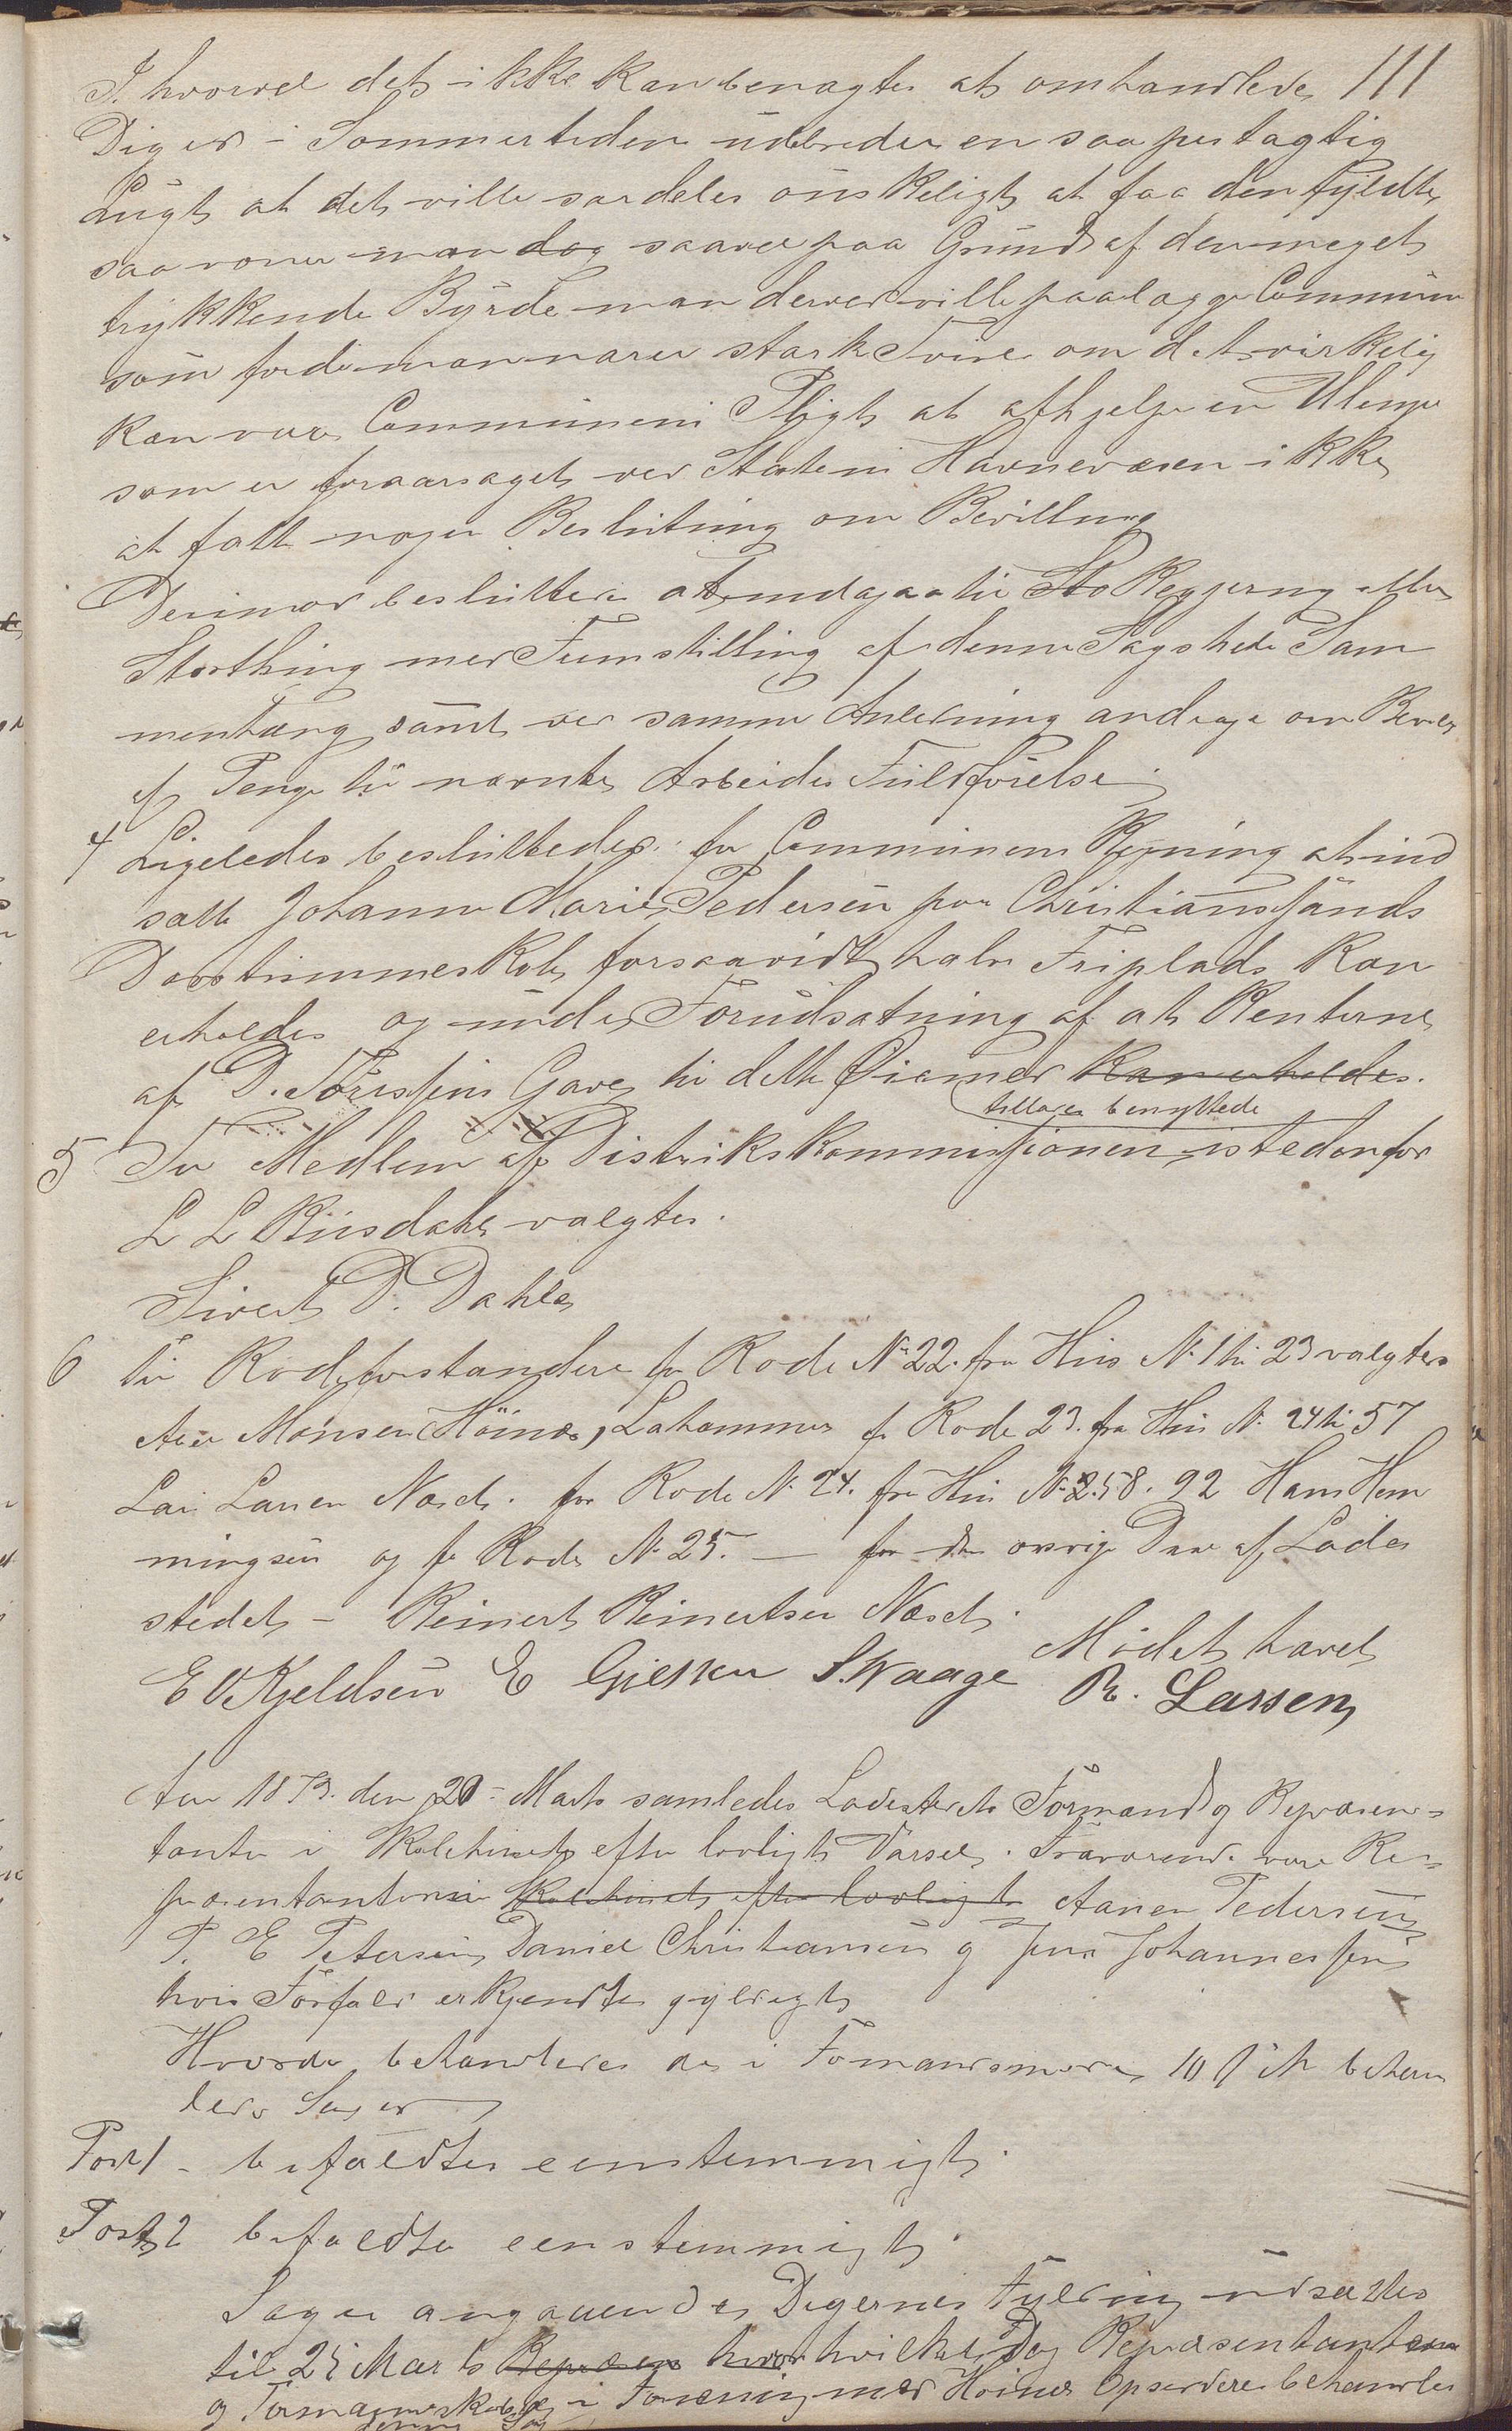 111
I hvorvel det ikke kan benægtes at omhandlede
Diger i Sommertiden udbreder en saa pestagtig
Lugt at det ville særdeles ønskeligt at faa den fyldte,
saa vover man dog saavel paa Grund af den meget
trykkende Byrde man derved ville paalægge Communen
som fordi man nærer stærk Tvivl om det virkelig
kan være Communens Pligt at afhjelpe en Ulempe
som er foraarsaget ved Statens Havnevæsen ikke
at fatte nogen Beslutning om Bevilling
Derimod besluttes at indgaa til Sto Regjering eller
Storthing med Fremstilling af denne Sags hele Sam
menhæng samt ved samme Anledning andrage om Bevilg
af Penge til nævnte Arbeides Fuldførelse.
4 Ligeledes besluttedes for Communens Regning at ind
sætte Johanne Marie Pedersen paa Christianssands
Døvstummeskole forsaavidt halv Friplads kan
erholdes og under Forudsætning af at Renterne
af D. Torissens Gave til dette Øiemed kan erholdes.
tillades benyttede
5 Til Medlem af Distriktskommissionen istedenfor
L L Riisdahl valgtes.
Sivert D. Dahle
6 til Rodeforstandere for Rode No 22. fra Huus No 1 til 23 valgtes
Ater Monsen (Höinæs) Lahammer for Rode 23. fra Huus No 24 til 57
Lars Larsen Næsch. for Rode No 24. fra Huus No 58. 92 Hans Hem
mingsen og for Rode No 25. — for den øvrige Deel af Lade
stedet – Reinert Reinertsen Næsch.
Mødet hævet
E O Kjeldsen E Gjesken S. Waage R. Larsen
Aar 1873. den 20 Marts samledes Ladestedets Formænd og Repræsen-
tanter i Skolehuset efter lovligt Varsel. Fraværende vare Re-
præsentanterne Skolehuset efter lovligt Aanen Pedersen
P. E Petersen, Daniel Christiansen og Jens Johannessen
hvis Forfald erkjendtes gyldigt
Hvorda behandledes de i Formandsmøde 10 behan
lede Sager
Post 1 – bifaldtes eenstemmigt
Post 2 bifaldtes eenstemmigt.
Sagen angaaende Digernes Fyldning udsattes
til 25 Marts Repræsen hvor hvilken Dag Repræsentanterne
og Formandskabet i Forening med Høines Opsiddere behandler
denne Sag